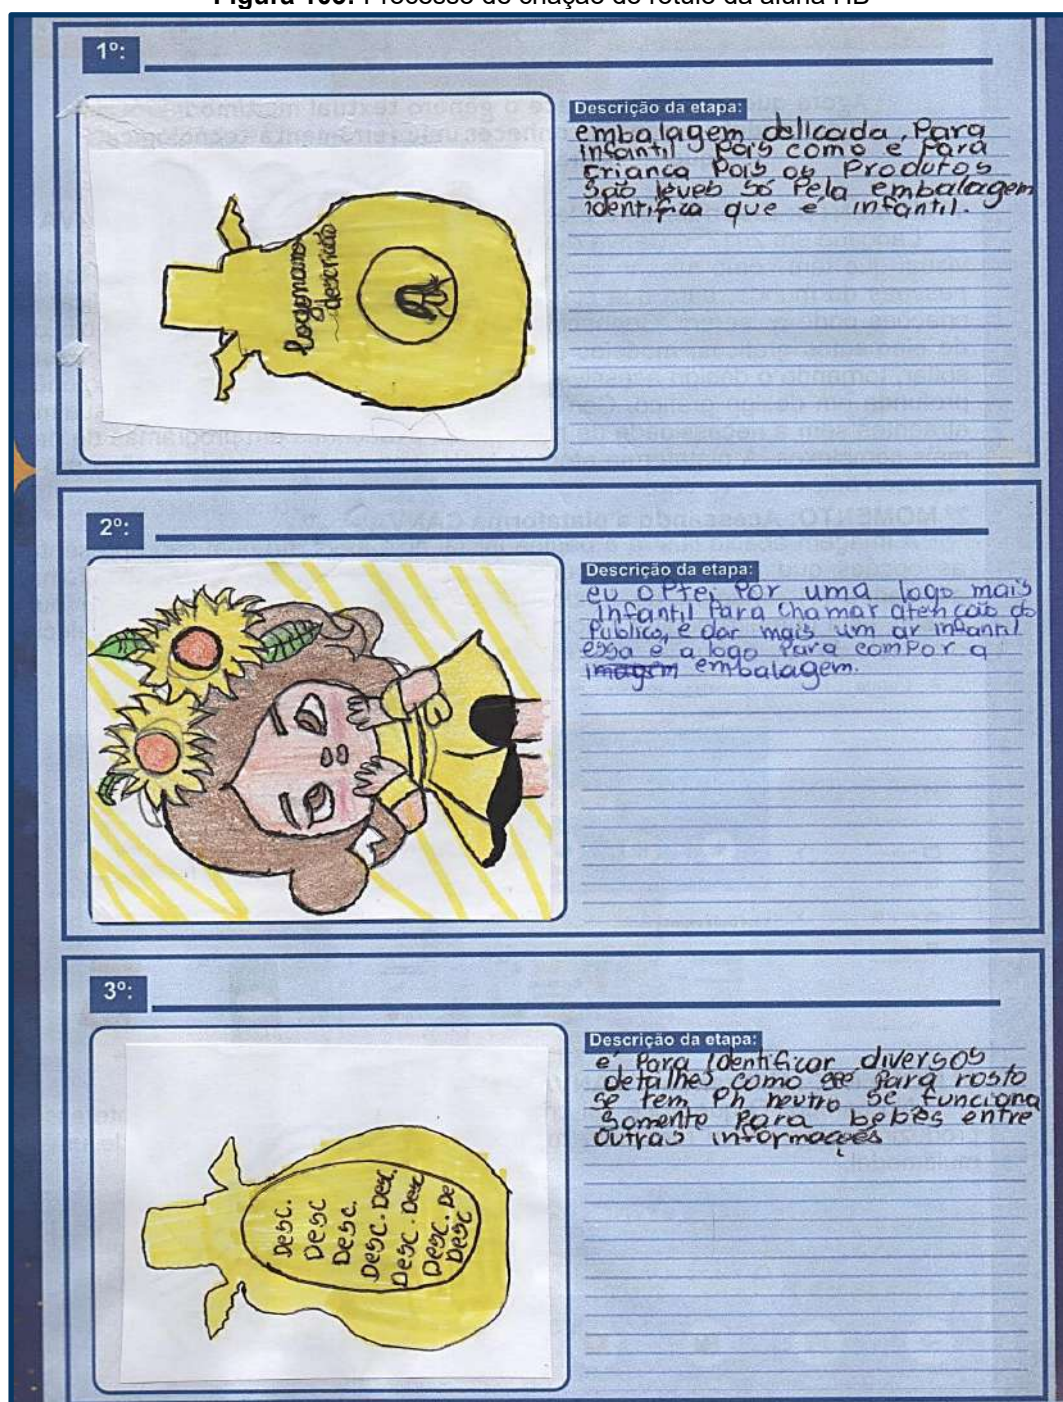 1º:
Descrição da etapa:
embalagem delicada, Para
infantil Pois como e Para
criança Pois os Produtos
são leves só Pela embalagem
identifica que é infantil.
descrição
2º:
Descrição da etapa:
eu optei Por uma logo mais
infantil Para chamar atenção do
Público, e dar mais um ar infantil
essa e a logo Para comPor a
embalagem.
3º:
Descrição da etapa:
é Para identificar diversos
detalhes como Para rosto
se tem Ph neutro se funciona
somente Para bebês entre
outras informações
Desc.
Desc
Desc.
Desc. Desc.
Desc. Desc
Desc. De
Desc